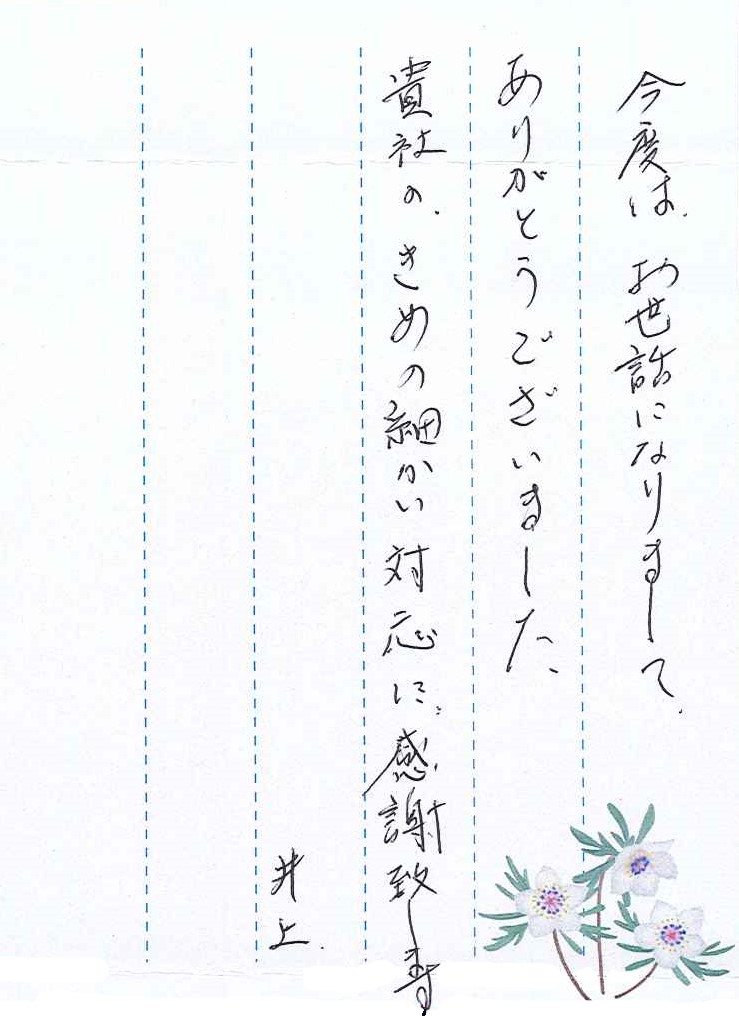 今度は、お世話になりまして、
ありがとうございました、
貴社の、きめの細かい対応に、感謝致します
井上.